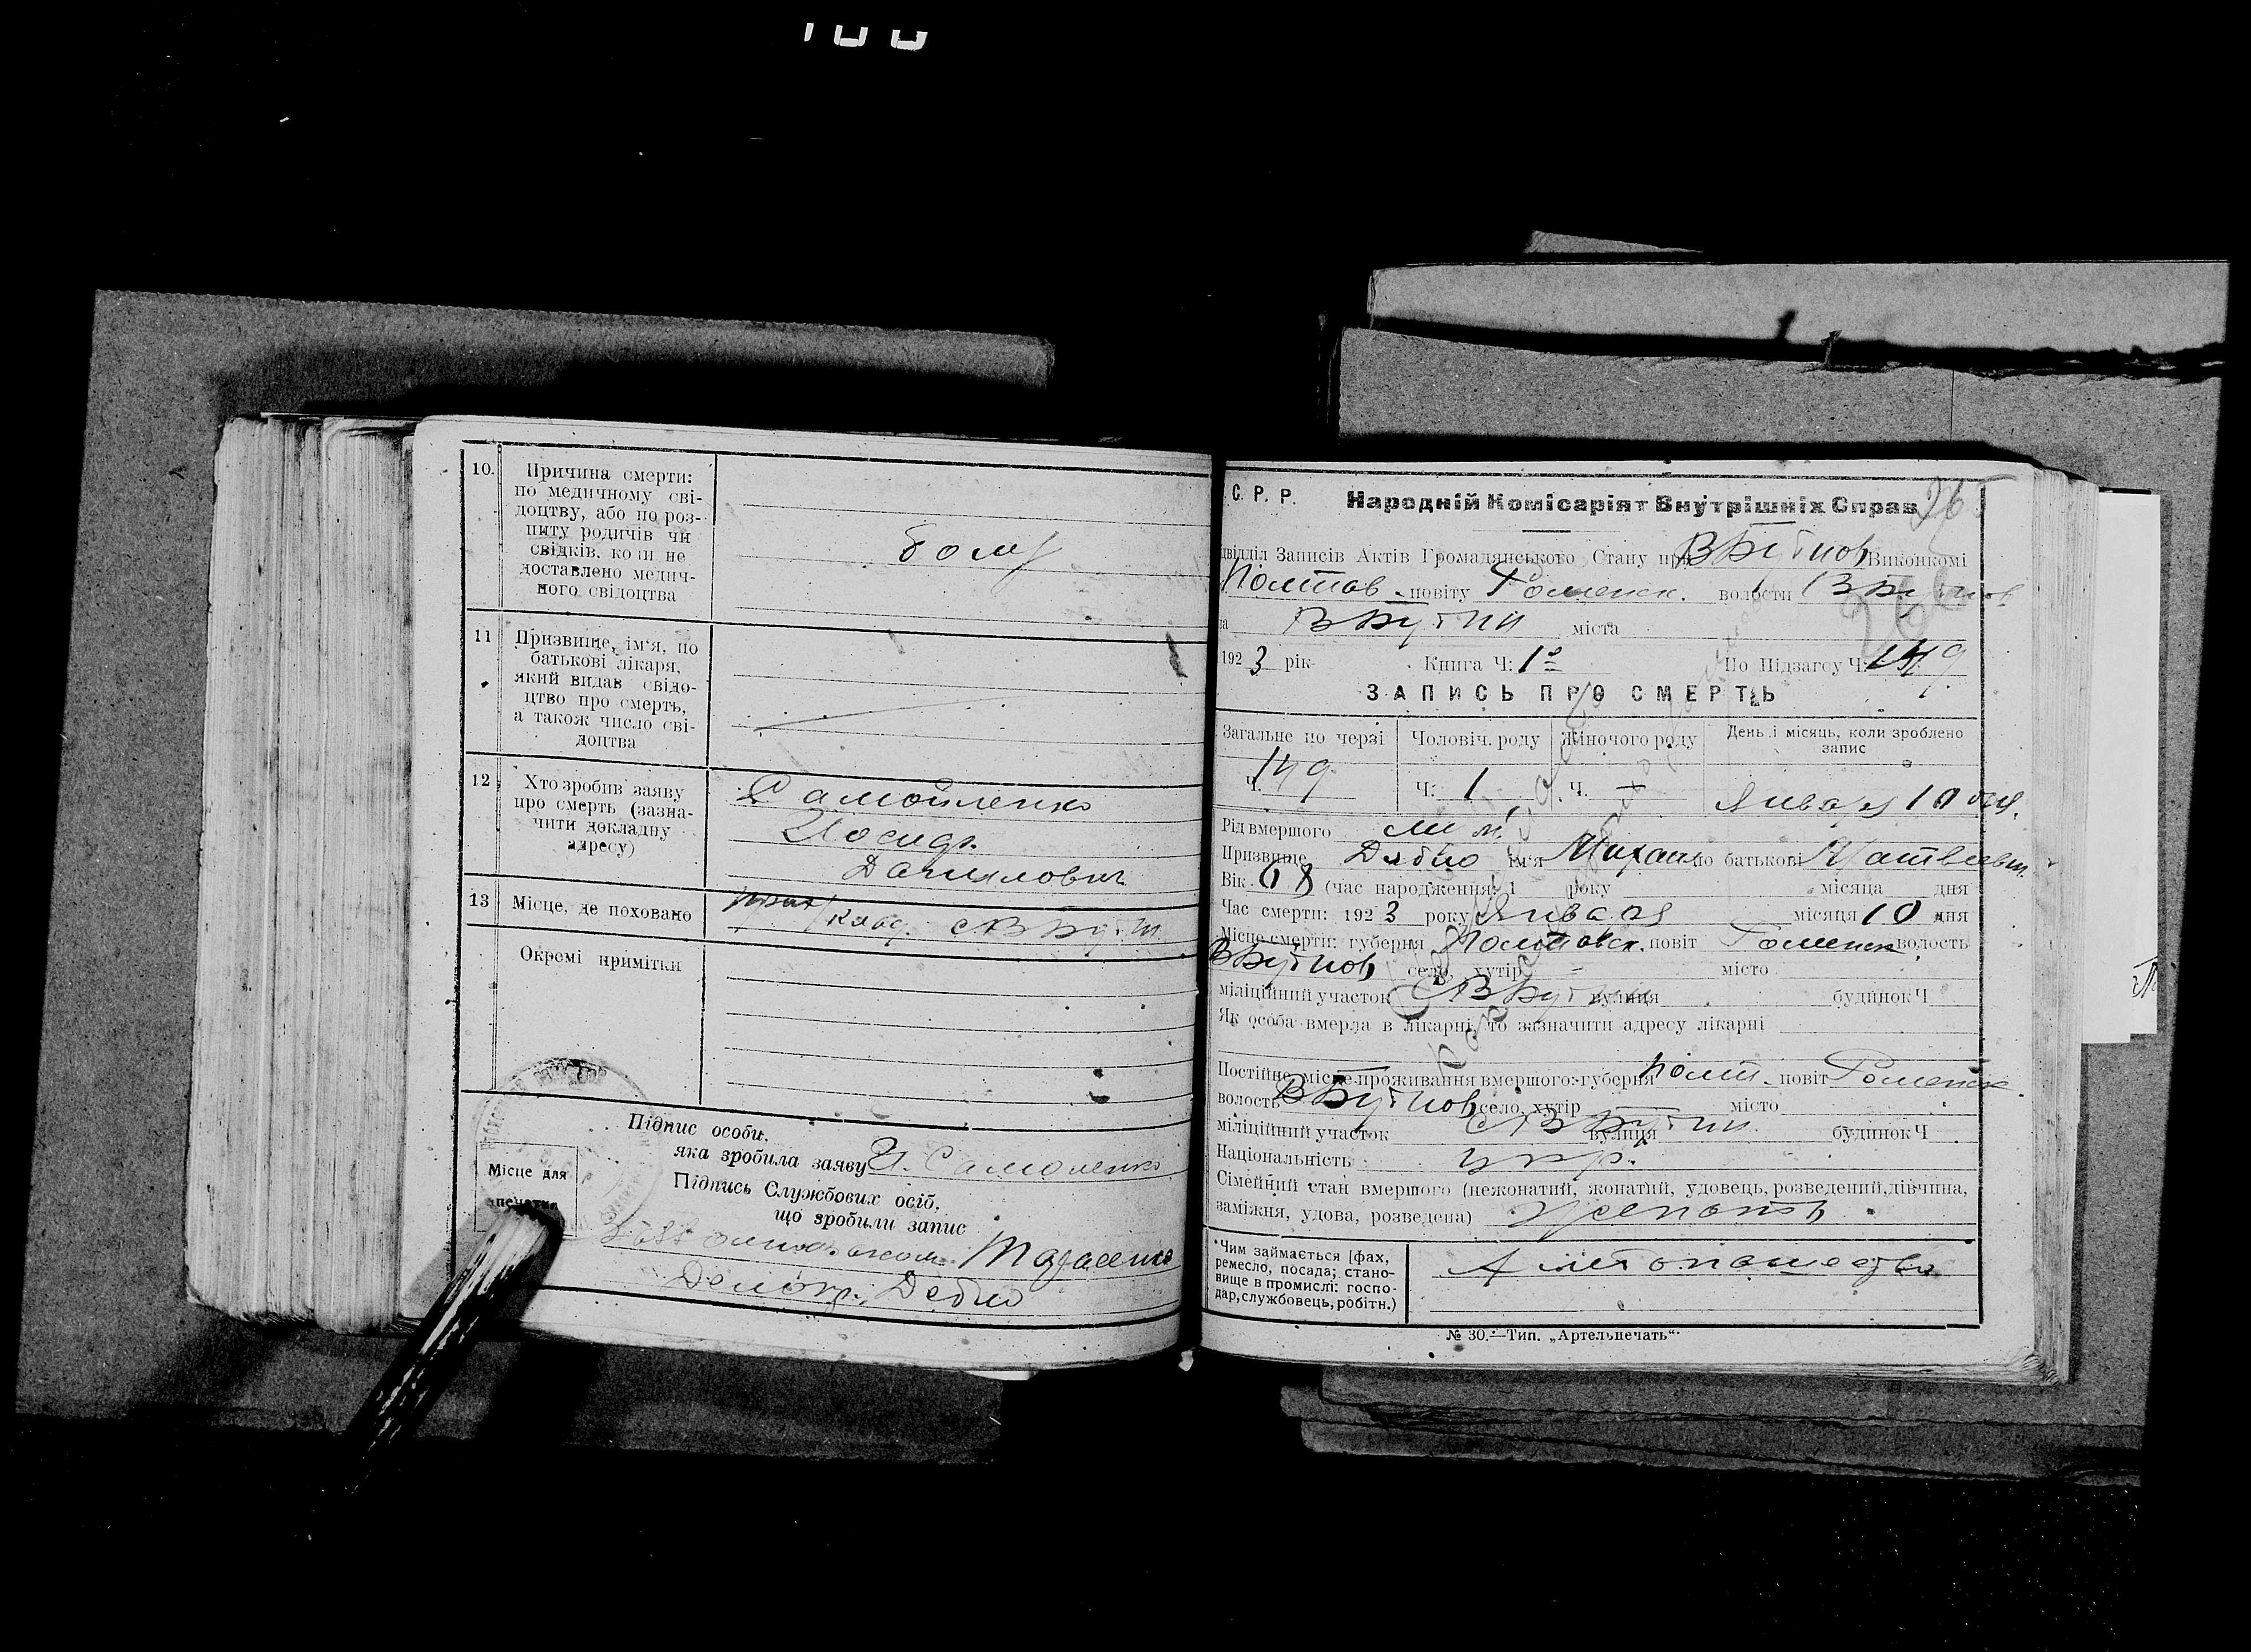 10. Причина смерти:
по медичному сві-
доцтву, або по роз-
питу родичів чи
свідків, коли не
доставлено медич-
ного свідоцтва
11 Призвище, ім'я, по
батькові лікаря,
який видав свідо-
цтво про смерть,
а також число сві-
доцтва
12 Хто зробив заяву
про смерть (зазна-
чити докладну
адресу)
Самойленко
Иосиф
Данилович
13 Місце, де поховано
кладб. с В Бутш
Окремі примітки
Підпис особи,
яка зробила заяву И. Самоленко
Підпись Службових осіб,
що зробили запис
Місце для
печатки
Тарасенко
Делопр. Дябло
С. Р. Р. Народній Комісаріят Внутрішніх Справ
26
двідділ Записів Актів Громадянського Стану при В Бутнов Виконкомі
Полтав. повіту Роменск. волости В Бутнов
на В Бутни міста
1923 рік Книга Ч: 1 По Підзагсу Ч: 149
ЗАПИСЬ ПРО СМЕРТЬ
Загальне по черзі Чоловіч. роду Жіночого роду День і місяць, коли зроблено
запис
Ч. 149 Ч: 1 Ч. — Января 10 дня.
Рід вмершого
Призвище Дябло ім'я Михаил по батькові Матвеевич
Вік 68 (час народження: 1 року місяца дня
Час смерти: 1923 року Января місяця 10 дня
Місце смерти: губерня Полтавск. повіт Роменск. волость
В Бутнов село, хутір — місто
міліційний участок С В Бутни вулиця будинок Ч
Як особа вмерла в лікарні, то зазначити адресу лікарні
Постійне місце проживання вмершого: губерня Полт. повіт Роменск
волость В Бутнов село, хутір місто
міліційний участок С В Бутни вулиця будинок Ч
Національність укр.
Сімейний стан вмершого (нежонатий, жонатий, удовець, розведений, дівчина,
заміжня, удова, розведена)
Чим займається [фах,
ремесло, посада; стано-
вище в промислі: госпо-
дар, службовець, робітн.)
№ 30.—Тип. „Артельпечать“